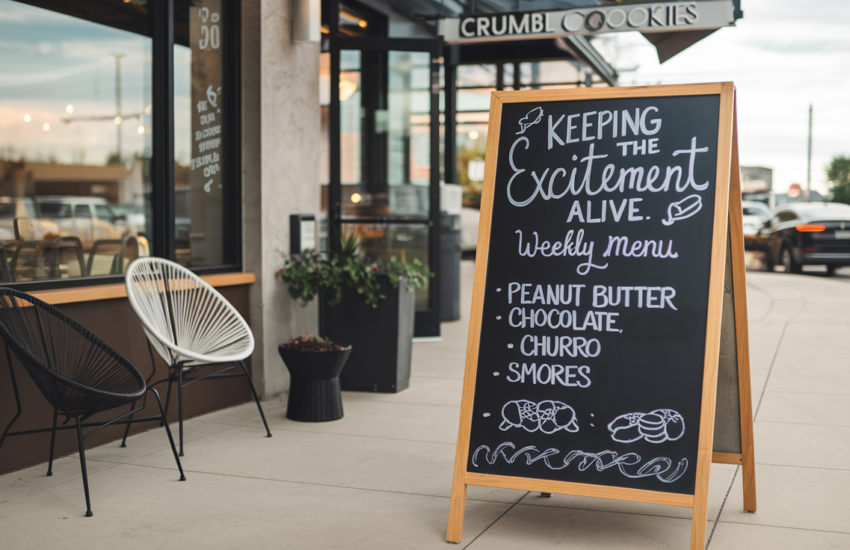 CRUMBL COOOKIES
KEEPING
THE
Excitement
ALIVE.
Weekly menu
· PEANUT BUTTER
· CHOCOLATE,
· CHURRO
· SMORES